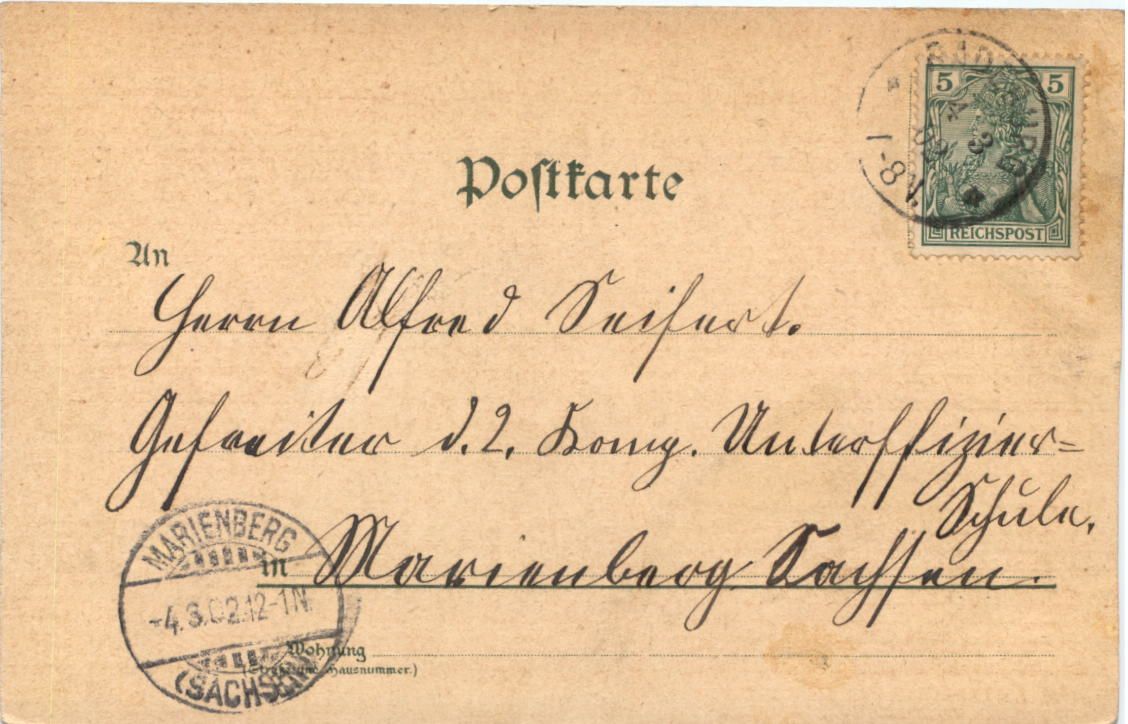 5 5
REICHSPOST
4 3 02
7-8V.
Postkarte
An
Herrn Alfred Seifert.
Gefreiter d. 2. Komp. Unteroffizier=
Schule.
in Marienberg Sachsen.
MARIENBERG
-4.3.02.12-1N.
(SACHSEN)
Wohnung
(Straße und Hausnummer.)